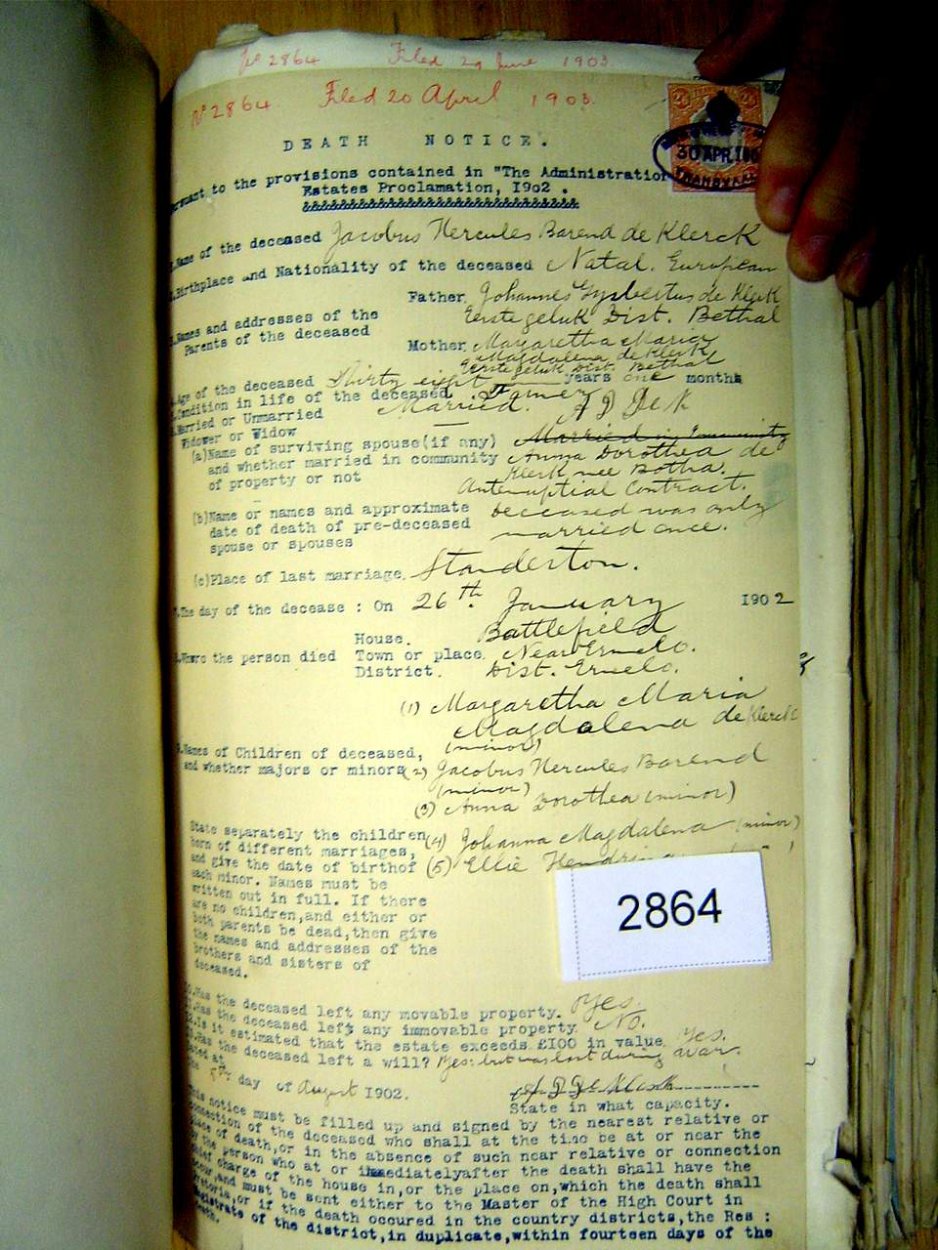 No 2864 Filed 29 June 1903
No 2864 Filed 20 April 1903.
30 APR 190
TRANSVAAL
DEATH NOTICE.
to the provisions contained in "The Administration
Estates Proclamation, 1902 .
&&&&&&&&&&&&&&&&&&&&&&&&&&&&
Name of the deceased Jacobus Hercules Barend de Klerck
Birthplace and Nationality of the deceased Natal. European
Names and addresses of the
Parents of the deceased
Father. Johannes Gysbertus de Klerk
Eerstegeluk Dist. Bethal
Mother. Margaretha Maria
Magdalena de Klerk
Eerstegeluk Dist. Bethal
Age of the deceased Thirty eight years one months
Condition in life of the deceased. Farmer
Married or Unmarried Married. A D De K
Widower or Widow —
(a)Name of surviving spouse(if any)
and whether married in community
of property or not
Married in Community
Anna Dorothea de
Klerk nee Botha.
Antenuptial Contract.
(b)Name or names and approximate
date of death of pre-deceased
spouse or spouses
deceased was only
married once.
(c)Place of last marriage. Standerton.
The day of the decease : On 26th. January 1902
Where the person died
House. Battlefield
Town or place. Near Ermelo.
District. Dist. Ermelo.
Names of Children of deceased,
and whether majors or minors
(1) Margaretha Maria
Magdalena de Klerck
(minor)
(2) Jacobus Hercules Barend
(minor)
(3) Anna Dorothea (minor)
(4) Johanna Magdalena (minor)
(5) Ellie
State separately the children
born of different marriages,
and give the date of birthof
each minor. Names must be
written out in full. If there
are no children,and either or
both parents be dead,then give
the names and addresses of the
brothers and sisters of
deceased.
2864
Has the deceased left any movable property. Yes.
Has the deceased left any immovable property No.
Is it estimated that the estate exceeds £100 in value. Yes.
Has the deceased left a will? Yes: but was lost during war.
Dated at
the 5th day of August 1902.
State in what capacity.
This notice must be filled up and signed by the nearest relative or
connection of the deceased who shall at the time be at or near the
place of death,or in the absence of such near relative or connection
by the person who at or immediatelyafter the death shall have the
chief charge of the house in,or the place on,which the death shall
occur,and must be sent either to the Master of the High Court in
Pretoria,or if the death occured in the country districts,the Res :
Magistrate of the district,in duplicate,within fourteen days of the
death.